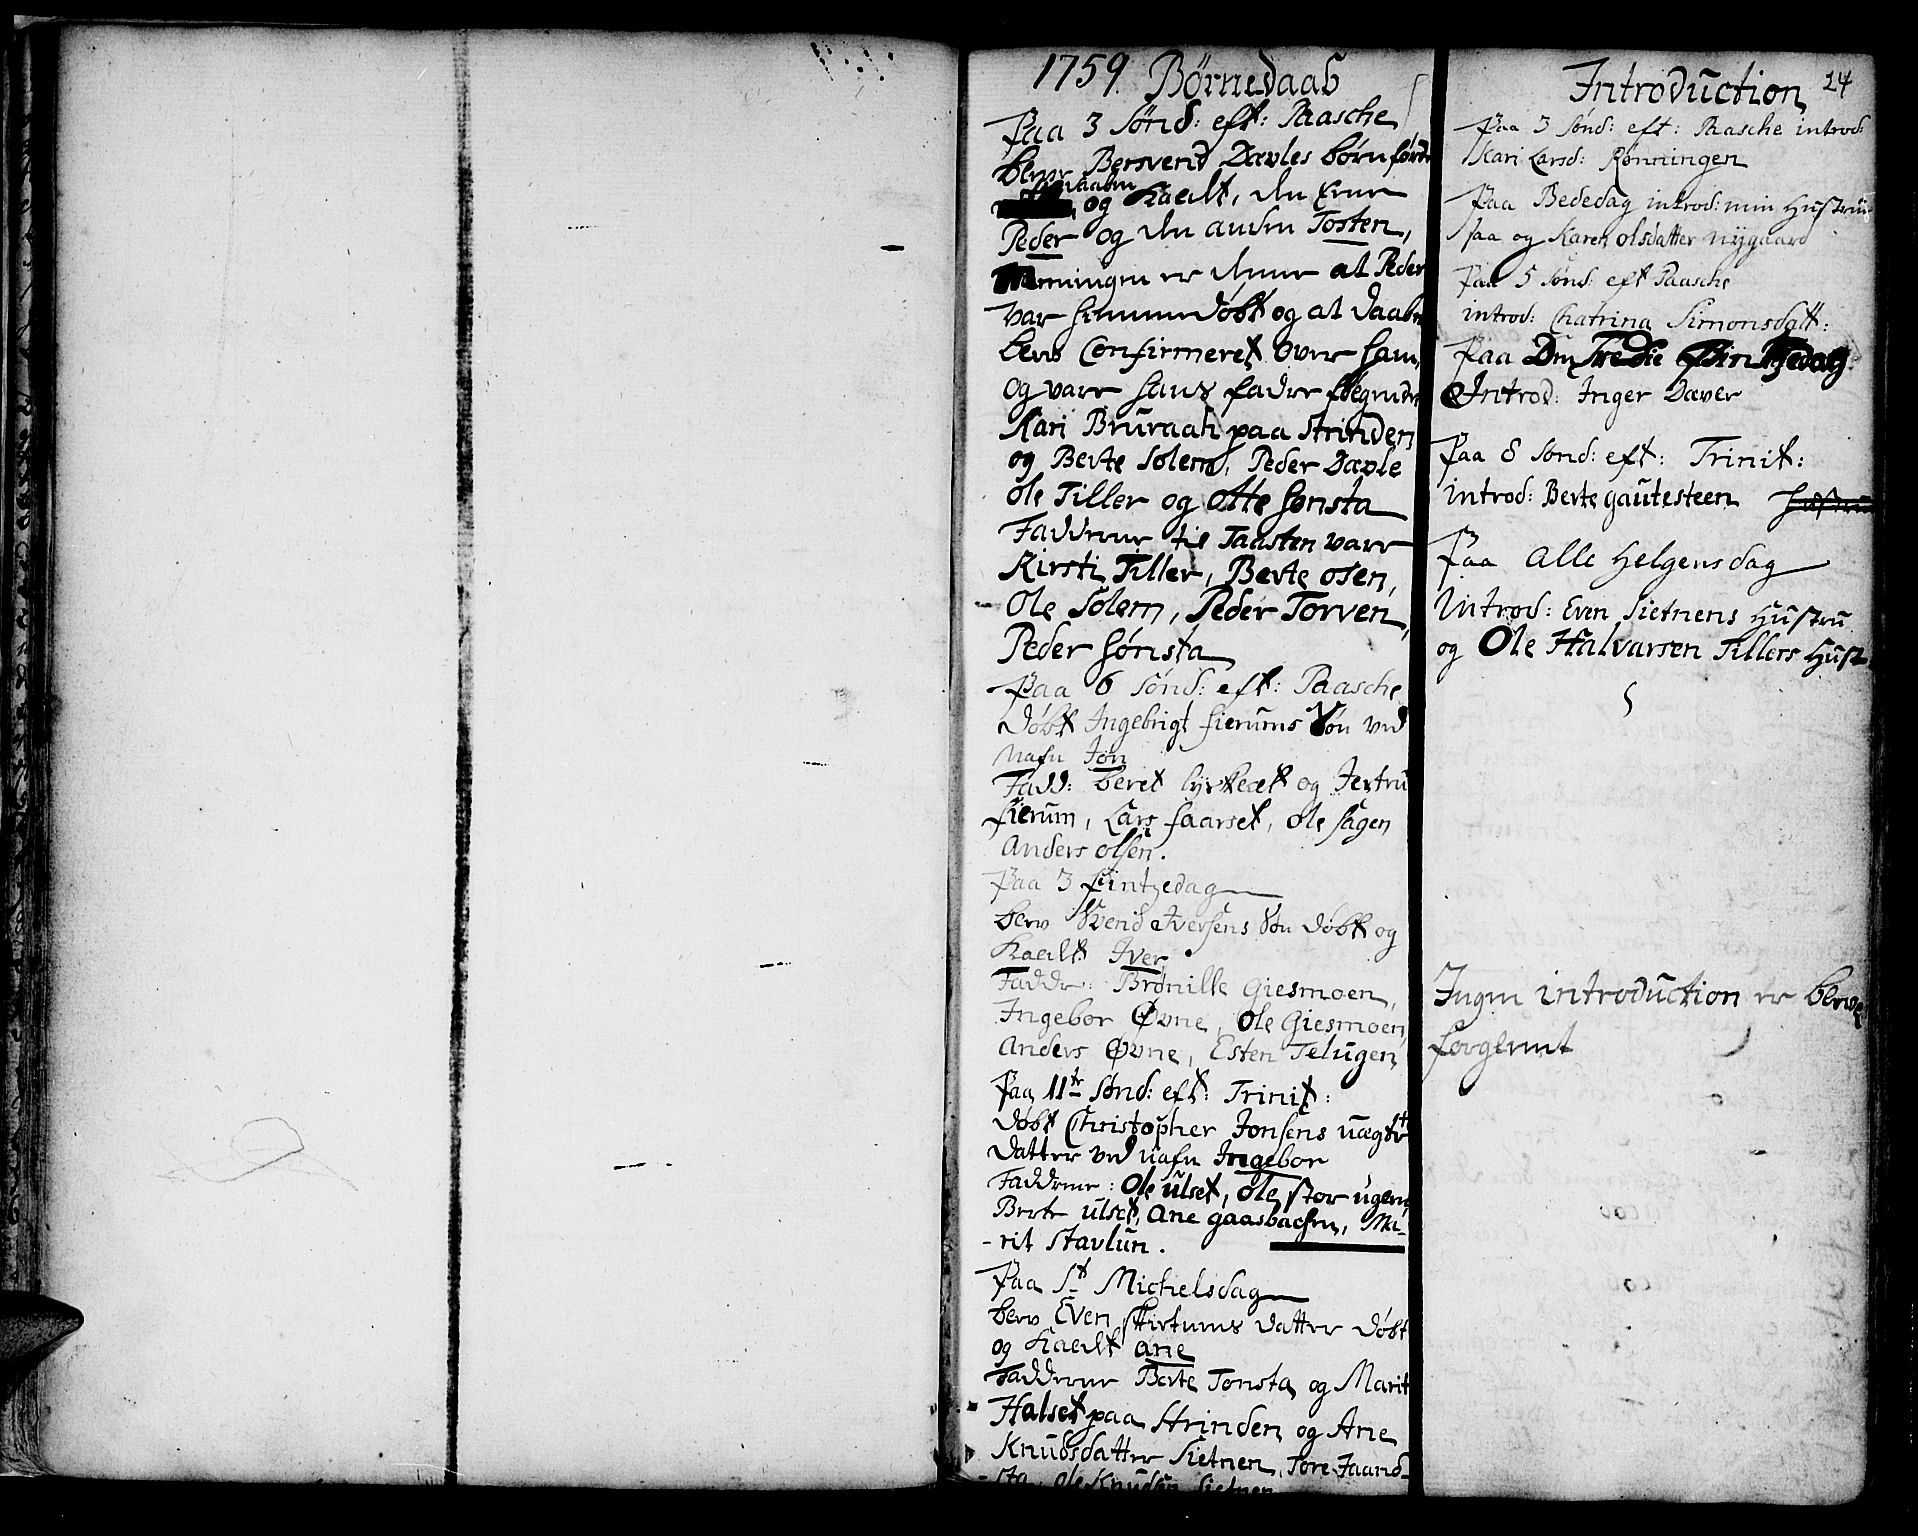 1759. Børnedaab
Paa 3 Sønd: eft: Paasche
blev Bersvend Dævles børn
og kaldt, den Eene
Peder og den anden Tosten,
Meeningen er denne at Peder
var hiemmedøbt og at daaben
blev Confirmeret over ham,
og vare hans faddere følgende
Kari Bruraak paa Strinden
og Berte Solem, Peder Dævle
Ole Tiller og Otte Hønsta
Faddrene til Taasten vare
Kirsti Tiller, Berte Osen,
Ole Solem, Peder Torven,
Peder Hønsta
Paa 6 Sønd: eft: Paasche
døbt Ingebrigt Hierums Søn ved
nafn Jon
Fadd: Beret og Jertru
Hierum, Lars Haarset, Ole Hagen
Anders Olsen.
Paa 3 Pintzedag
blev Svend Iversens Søn døbt og
kaldt Iver
Faddr: Brønille Giesmoen,
Ingebor Øvne, Ole Giesmoen,
Anders Øvne, Esten Telugen
Paa 11te Sønd: eft: Trinit:
døbt Christopher Jonsens uægte
datter ved nafn Ingebor
Faddrene: Ole Ulset, Ole Storugen,
Berte Ulset, Ane Gaasbachen, Ma-
-rit Stavlun.
Paa St Michelsdag
blev Even datter døbt
og kaldt Ane
Faddrene Berte Tonsta og Marit
Halset paa Strinden og Ane
Knudsdatter Sietnen, Tore Jaand-
-sta, Ole Knudsen Sietnen
Introduction 24
Paa 3 Sønd: eft: Paasche introd:
Kari Larsd: Rønningen
Paa Bededag introd: min Hustru
saa og Karen Olsdatter Nygaard
Paa 5 Sønd: eft Paasche
introd: Chatrina Simonsdatt:
Paa Den Tredie Pintzedag
Introd: Inger Dæver
Paa 8 Sønd: eft: Trinit:
introd: Berte Gautesteen
Paa Alle Helgensdag
Introd: Even Sietnens Hustru
og Ole Halvarsen Tillers Hust
Ingen introduction er bleve
forglemt